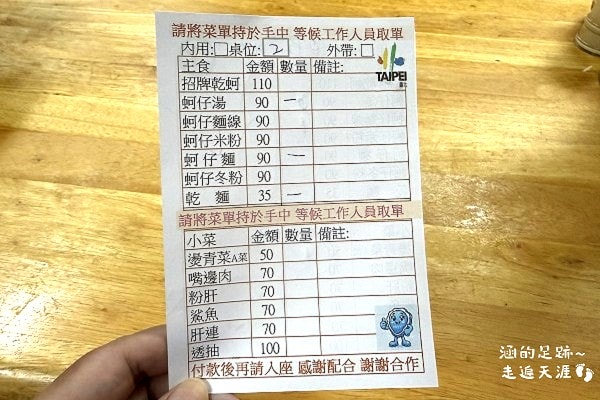 請將菜單持於手中 等候工作人員取單
內用:□桌位: 2 外帶:□
主食 金額 數量 備註:
TAIPEI
招牌乾蚵 110
蚵仔湯 90 一
蚵仔麵線 90
蚵仔米粉 90
蚵仔麵 90 一
蚵仔冬粉 90
乾麵 35 一
請將菜單持於手中 等候工作人員取單
小菜 金額 數量 備註:
燙青菜A菜 50
嘴邊肉 70
粉肝 70
鯊魚 70
肝連 70
透抽 100
付款後再請入座 感謝配合 謝謝合作
涵的足跡~
走遍天涯